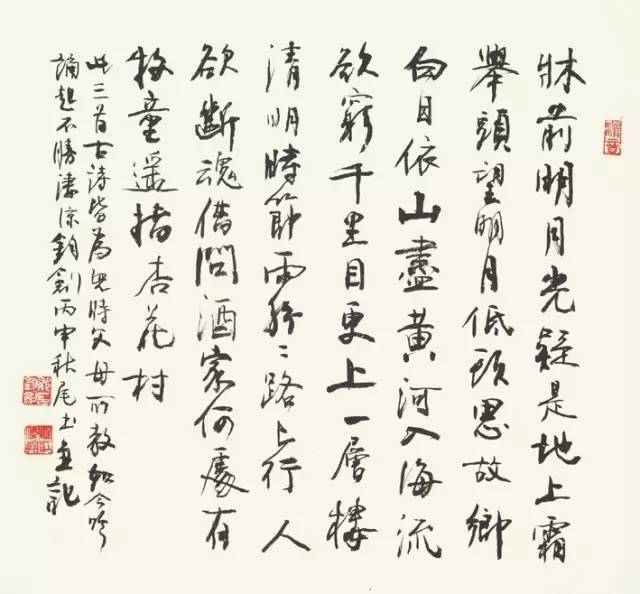 牀前明月光疑是地上霜
舉頭望明月低頭思故鄉
白日依山盡黃河入海流
欲窮千里目更上一層樓
清明時節雨紛〻路上行人
欲斷魂借問酒家何處有
牧童遥指杏花村
此三首古詩皆為兒時父母所教如今吟
誦起不勝淒涼鈞劍丙申秋尾书並記